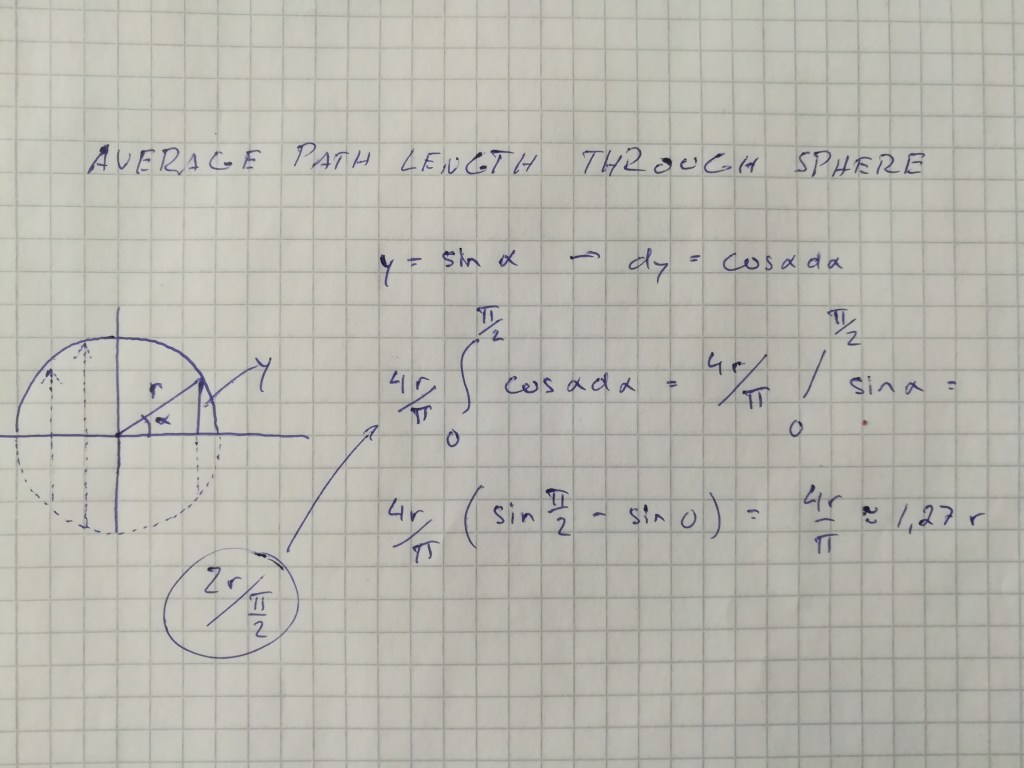 AVERAGE PATH LENGTH THROUGH SPHERE
y = sin α → dy = cos α dα
r α y
4r/π ∫₀^π/2 cos α dα = 4r/π /₀^π/2 sin α =
4r/π (sin π/2 - sin 0) = 4r/π ≈ 1,27 r
2r/π/2